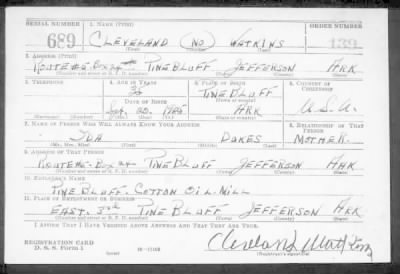 SERIAL NUMBER 1. NAME (Print) ORDER NUMBER
689 CLEVELAND (NO) WATKINS 139
2. ADDRESS (Print)
ROUTE #2-BOX PINE BLUFF JEFFERSON ARK
3. TELEPHONE 4. AGE IN YEARS 5. PLACE OF BIRTH 6. COUNTRY OF CITIZENSHIP
PINE BLUFF
DATE OF BIRTH
ARK U.S.A.
7. NAME OF PERSON WHO WILL ALWAYS KNOW YOUR ADDRESS 8. RELATIONSHIP OF THAT PERSON
IDA DUKES MOTHER
(Mr., Mrs., Miss) (First) (Middle) (Last)
9. ADDRESS OF THAT PERSON
ROUTE #2-BOX PINE BLUFF JEFFERSON ARK
10. EMPLOYER'S NAME
PINE BLUFF. COTTON OIL. MILL
11. PLACE OF EMPLOYMENT OR BUSINESS
EAST. 3rd PINE BLUFF JEFFERSON ARK
I AFFIRM THAT I HAVE VERIFIED ABOVE ANSWERS AND THAT THEY ARE TRUE.
REGISTRATION CARD
D. S. S. Form 1
Cleveland Watkins
(Registrant's signature)